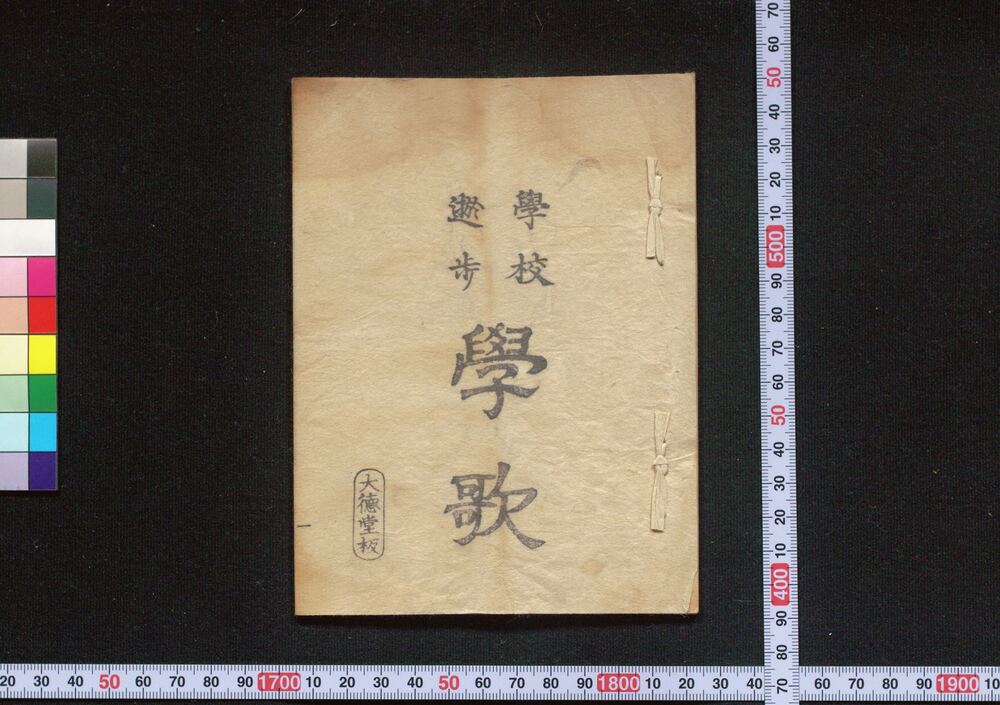 學校
遊步
學歌
大德堂板
一
70 60 50 40 30 20 10 500 90 80 70 60 50 40 30 20 10 400 90 80 70
20 30 40 50 60 70 80 90 1700 10 20 30 40 50 60 70 80 90 1800 10 20 30 40
60 70 80 90 1900 10